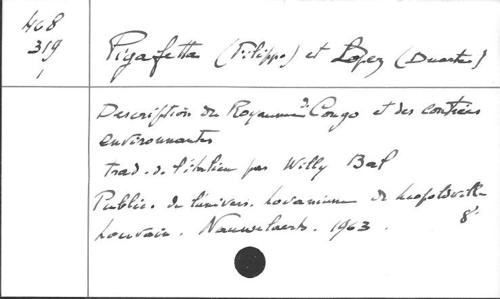 468
319
1
Pigafetta (Filippo) et Lopez (Duarte)
Description du Royaume de Congo et des contrées
environnantes
trad. de l'italien par Willy Bal
Public. de l'univers. Lovanium de Léopoldville
Louvain. Nauwelaerts. 1963. 8°